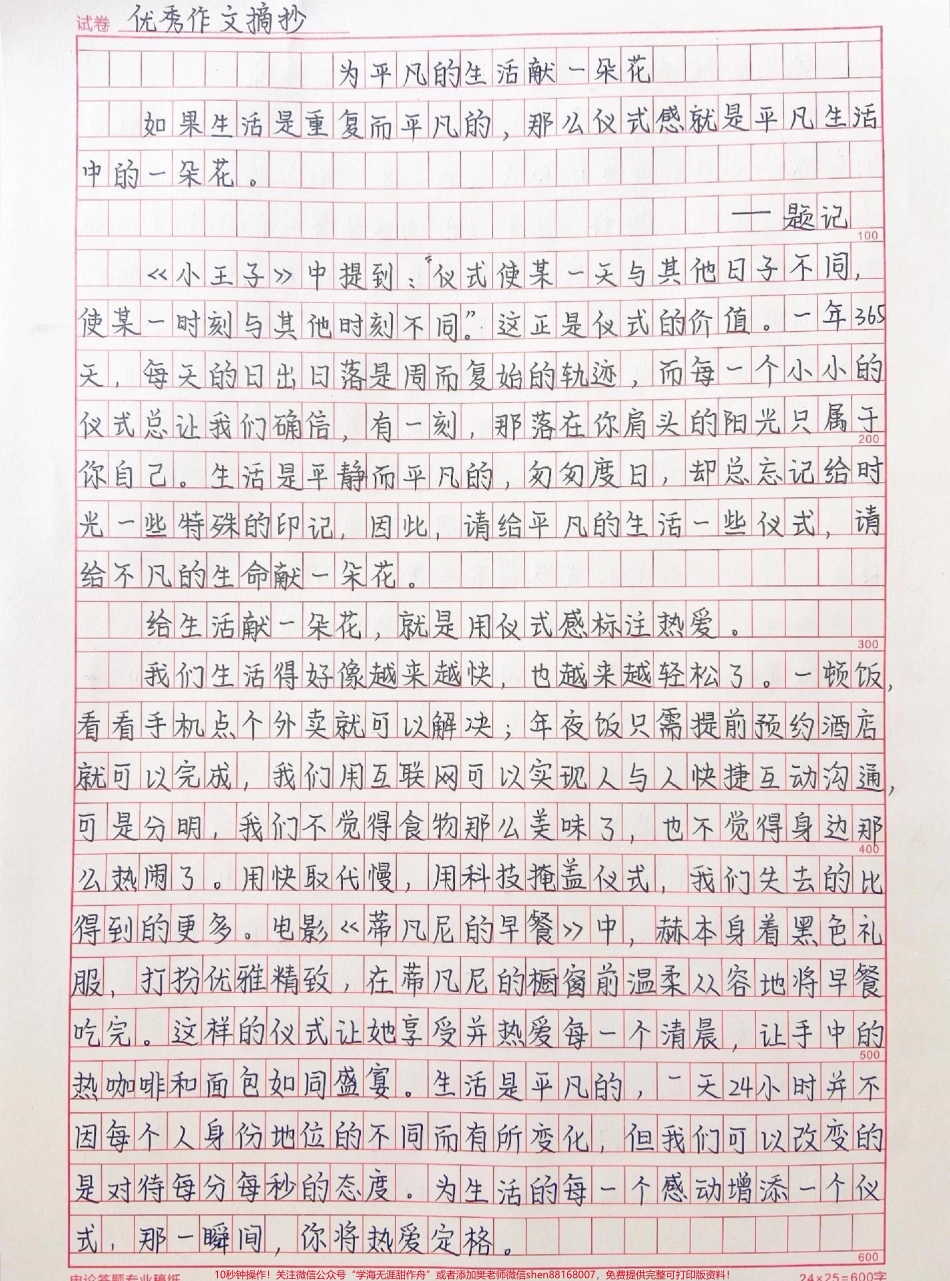 试卷 优秀作文摘抄
为平凡的生活献一朵花
如果生活是重复而平凡的，那么仪式感就是平凡生活
中的一朵花。
——题记
100
《小王子》中提到：“仪式使某一天与其他日子不同，
使某一时刻与其他时刻不同。”这正是仪式的价值。一年365
天，每天的日出日落是周而复始的轨迹，而每一个小小的
仪式总让我们确信，有一刻，那落在你肩头的阳光只属于
200
你自己。生活是平静而平凡的，匆匆度日，却总忘记给时
光一些特殊的印记，因此，请给平凡的生活一些仪式，请
给不凡的生命献一朵花。
给生活献一朵花，就是用仪式感标注热爱。
300
我们生活得好像越来越快，也越来越轻松了。一顿饭，
看看手机点个外卖就可以解决；年夜饭只需提前预约酒店
就可以完成，我们用互联网可以实现人与人快捷互动沟通，
可是分明，我们不觉得食物那么美味了，也不觉得身边那
400
么热闹了。用快取代慢，用科技掩盖仪式，我们失去的比
得到的更多。电影《蒂凡尼的早餐》中，赫本身着黑色礼
服，打扮优雅精致，在蒂凡尼的橱窗前温柔从容地将早餐
吃完。这样的仪式让她享受并热爱每一个清晨，让手中的
500
热咖啡和面包如同盛宴。生活是平凡的，一天24小时并不
因每个人身份地位的不同而有所变化，但我们可以改变的
是对待每分每秒的态度。为生活的每一个感动增添一个仪
式，那一瞬间，你将热爱定格。
600
申论答题专业稿纸 24×25=600字
10秒钟操作！关注微信公众号“学海无涯甜作舟”或者添加樊老师微信shen88168007，免费提供完整可打印版资料！